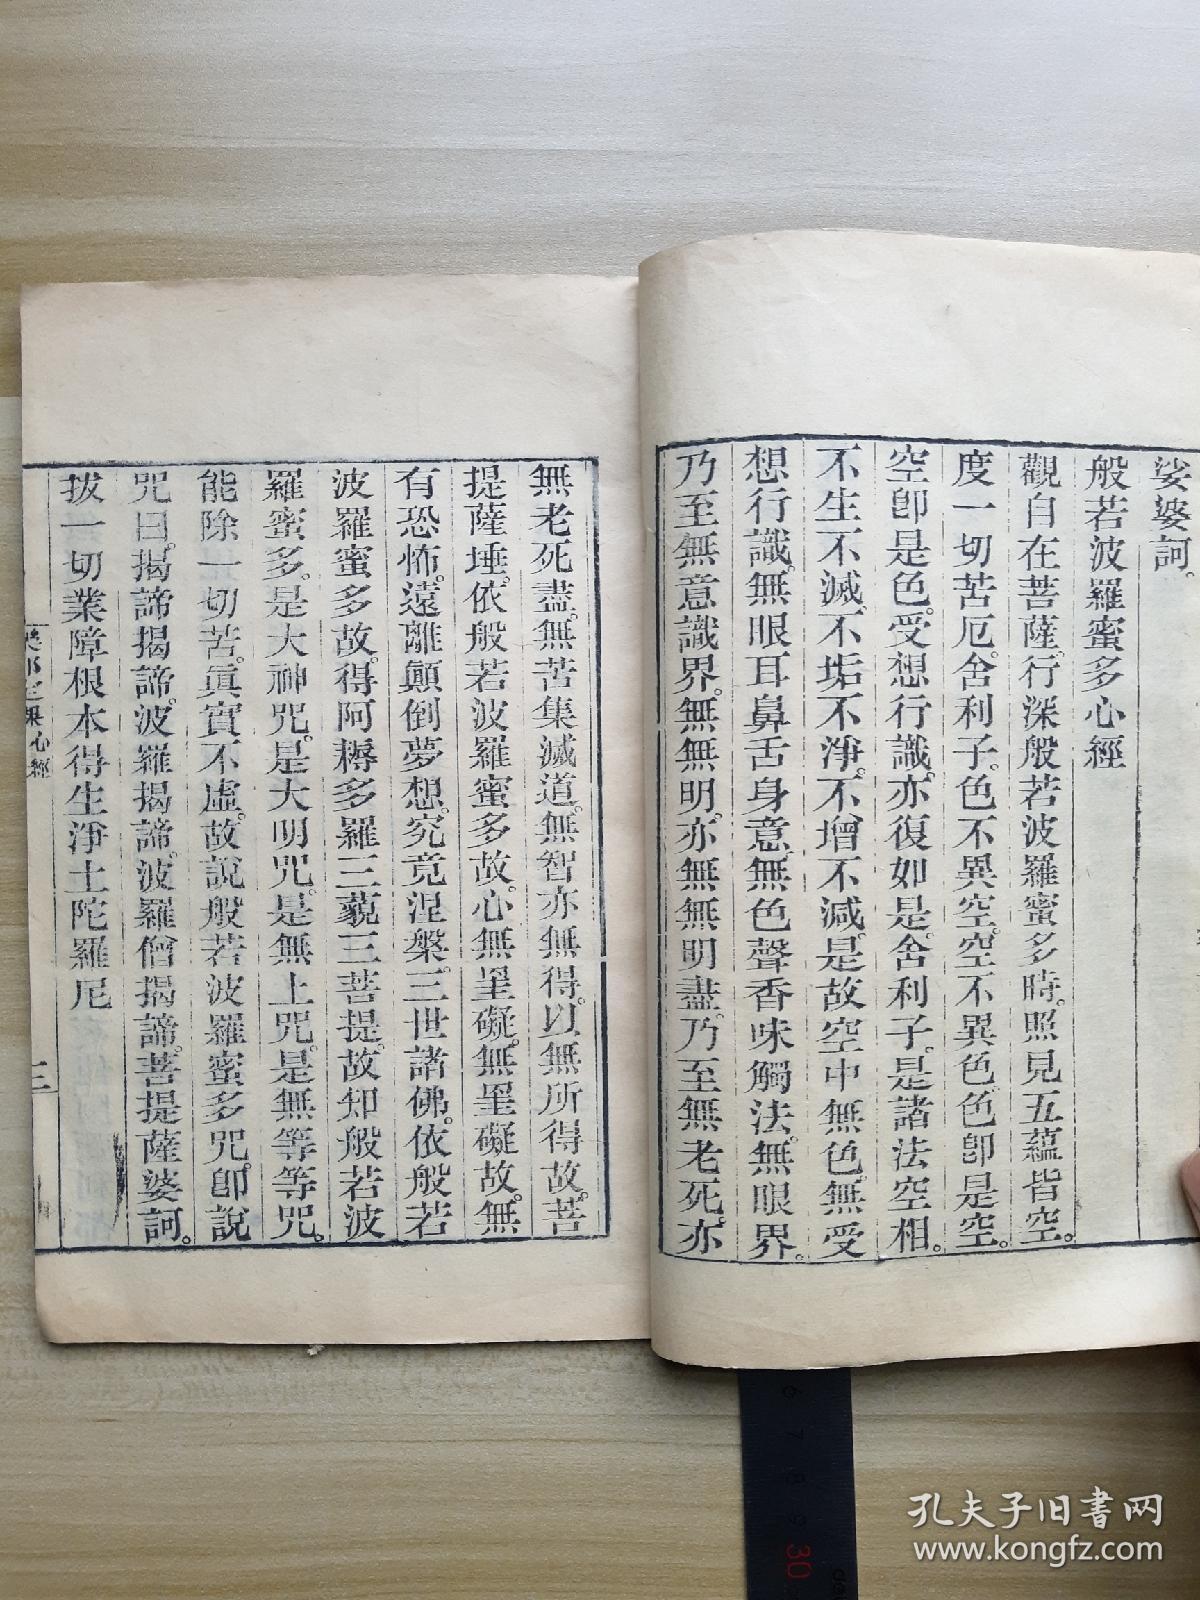 娑婆訶。
般若波羅蜜多心經
觀自在菩薩。行深般若波羅蜜多時。照見五蘊皆空。
度一切苦厄。舍利子。色不異空。空不異色。色卽是空。
空卽是色。受想行識。亦復如是。舍利子。是諸法空相。
不生不滅。不垢不淨。不增不減。是故空中無色。無受
想行識。無眼耳鼻舌身意。無色聲香味觸法。無眼界。
乃至無意識界。無無明。亦無無明盡。乃至無老死。亦
無老死盡。無苦集滅道。無智亦無得。以無所得故。菩
提薩埵。依般若波羅蜜多故。心無罣礙。無罣礙故。無
有恐怖。遠離顛倒夢想。究竟涅槃。三世諸佛。依般若
波羅蜜多故。得阿耨多羅三藐三菩提。故知般若波
羅蜜多。是大神咒。是大明咒。是無上咒。是無等等咒。
能除一切苦。眞實不虛。故說般若波羅蜜多咒。卽說
咒曰。揭諦揭諦。波羅揭諦。波羅僧揭諦。菩提薩婆訶。
拔一切業障根本得生淨土陀羅尼
心經
三
6 7 8 9 30
孔夫子旧书网
www.kongfz.com